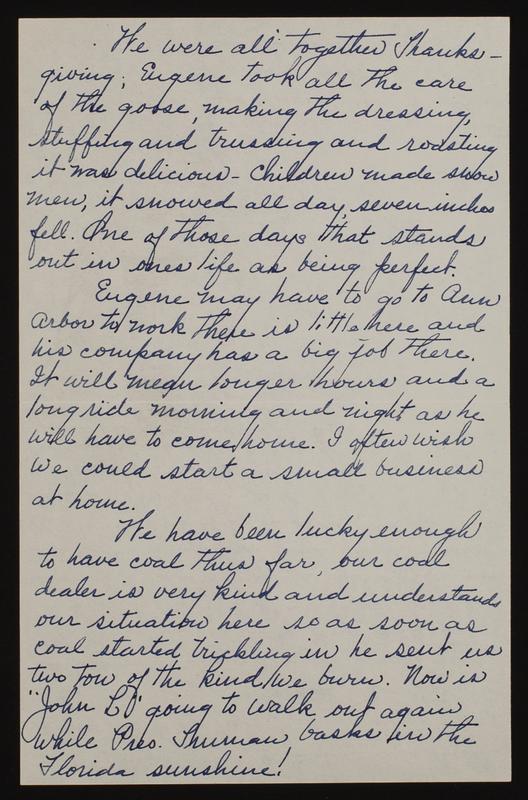 We were all together Thanks-
giving; Eugene took all the care
of the goose, making the dressing,
stuffing and trussing and roasting
it was delicious - Children made snow
men, it snowed all day, seven inches
fell. One of those days that stands
out in ones life as being perfect.
Eugene may have to go to Ann
Arbor to work there is little here and
his company has a big job there.
It will mean longer hours and a
long ride morning and night as he
will have to come home. I often wish
we could start a small business
at home.
We have been lucky enough
to have coal thus far, our coal
dealer is very kind and understands
our situation here so as soon as
coal started trickling in he sent us
two ton of the kind we burn. Now is
"John L" going to walk out again
while Pres. Truman basks in the
Florida sunshine!